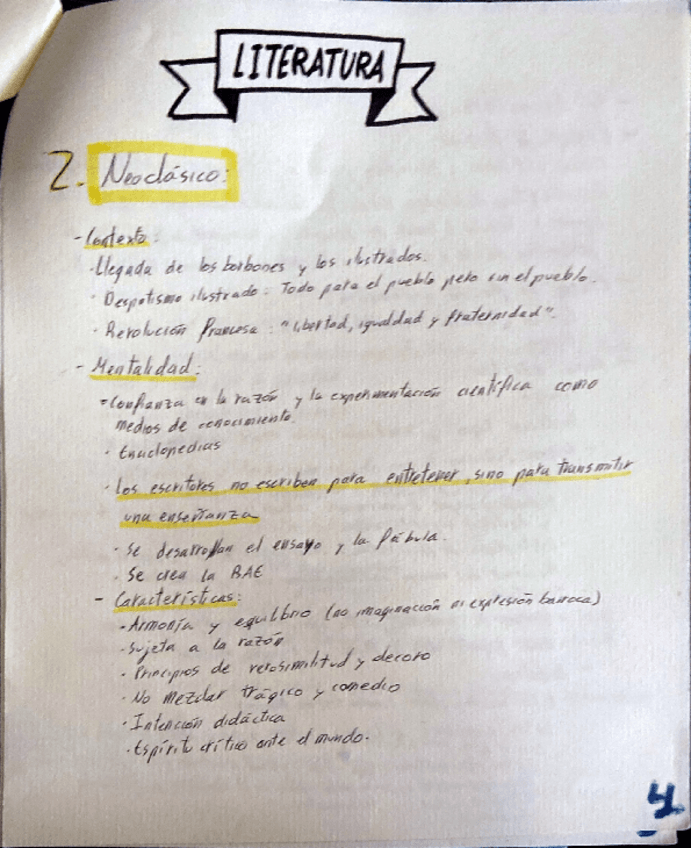 LITERATURA
2. Neoclásico:
- Contexto:
· Llegada de los borbones y los ilustrados.
· Despotismo ilustrado: Todo para el pueblo pero sin el pueblo.
· Revolución francesa: "libertad, igualdad y fraternidad".
- Mentalidad:
· Confianza en la razón y la experimentación científica como
medios de conocimiento.
· Enciclopedias
· Los escritores no escriben para entretener, sino para transmitir
una enseñanza
· Se desarrollan el ensayo y la fábula.
· Se crea la RAE
- Características:
· Armonía y equilibrio (no imaginación ni expresión barroca)
· Sujeta a la razón
· Principios de verosimilitud y decoro
· No mezclar trágico y comedia
· Intención didáctica
· Espíritu crítico ante el mundo.
4